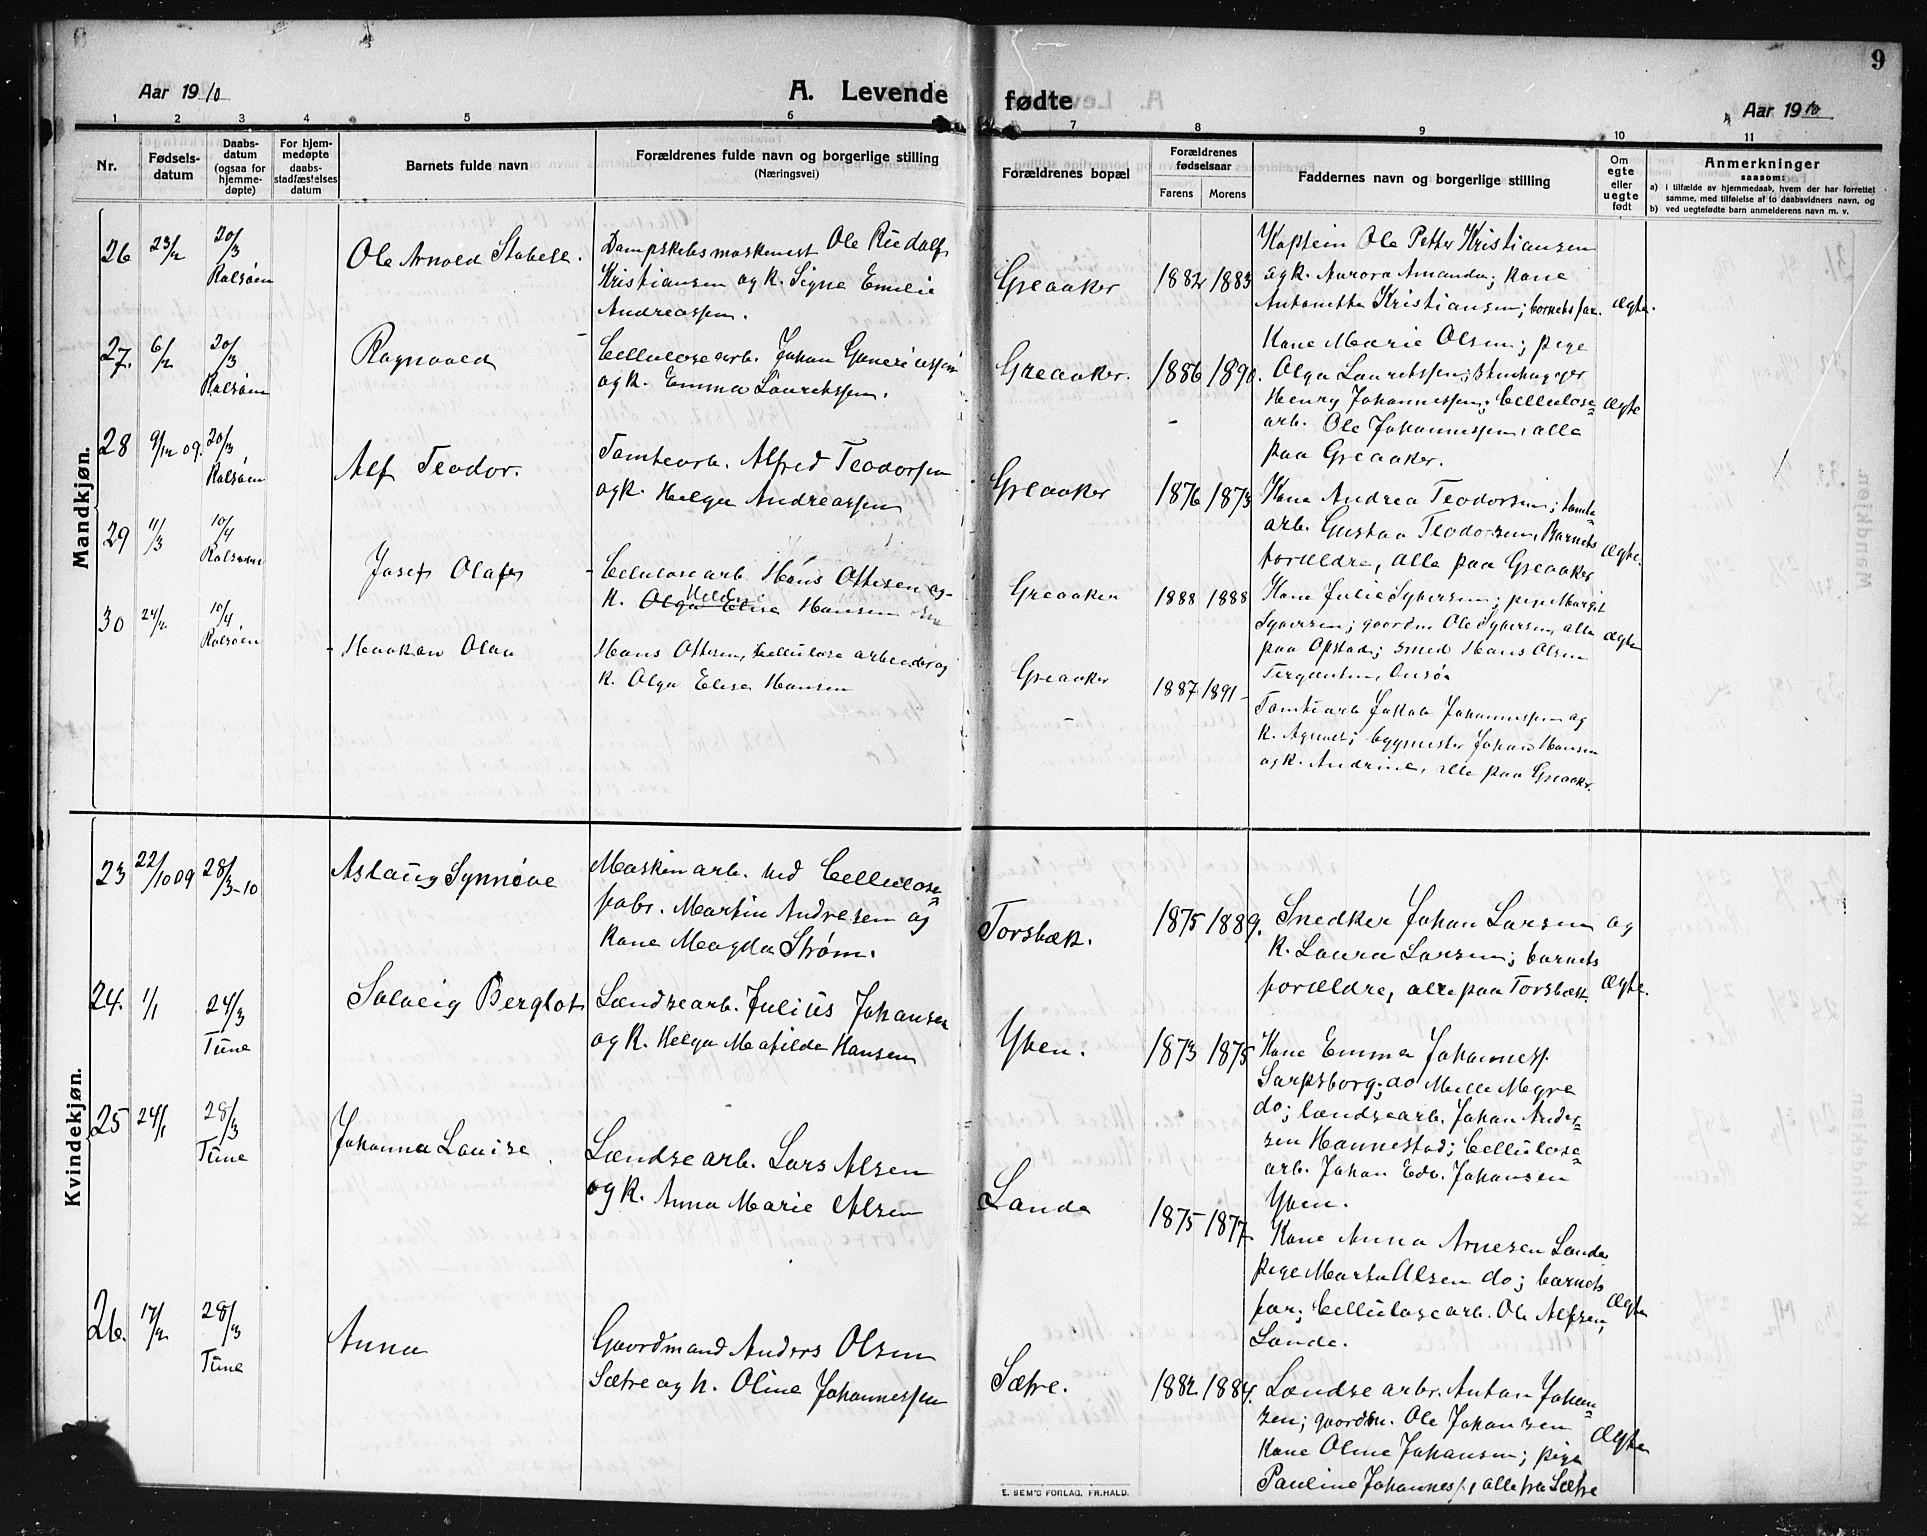 9
Aar 1910
A. Levende
fødte
Aar 1910
1 2 3 4 5 6 7 8 9 10 11
Nr.
Fødsels-
datum
Daabs-
datum
(ogsaa for
hjemme-
døpte)
For hjem-
medøpte
daabs-
stadfæstelses
datum
Barnets fulde navn
Forældrenes fulde navn og borgerlige stilling
(Næringsvei)
Forældrenes bopæl
Forældrenes
fødselsaar
Farens Morens
Faddernes navn og borgerlige stilling
Om
egte
eller
uegte
født
Anmerkninger
saasom:
a) i tilfælde av hjemmedaab, hvem der har forrettet
samme, med tilføielse af to daabsvidners navn, og
b) ved uegtefødte barn anmelderens navn m. v.
Mandkjøn.
26 23/2 20/3
Rolsøen
Ole Arnold Stabell.
Dampskibsmaskinist Ole Rudolf
Kristiansen og k. Signe Emilie
Andreassen.
Greaaker 1882 1883
Kaptein Ole Petter Kristiansen
og k. Aurora Amanda; kone
Antonette Kristiansen; barnets far. Ægte.
27. 6/2 20/3
Rolsøen
Ragnvald
Cellulosearb. Johan
og k. Emma Lauritssen.
Greaaker. 1886 1890.
Kone Marie Olsen; pige
Olga Lauritssen; stenhugger
Henry Johannessen; Cellulose=
arb. Ole Johannessen, alle
paa Greaaker.
Ægte
28 9/12 09. 20/3
Rolsøen
Alf Teodor.
Tomtearb. Alfred Teodorsen
og k. Helga Andreassen
Greaaker 1876 1873
Kone Andrea Teodorsen; tomte=
arb. Gustav Teodorsen, Barnets
forældre, alle paa Greaaker
Ægte.
29 11/3 10/4
Rolsøen
Josef Olaf
Cellulosearb. Hans Ottesen og
k. Olga Elise Hansen
Greaaker 1888 1888
Kone Julie Syversen; pige Margit
Syversen; gaardm. Ole Syversen, alle
paa Opstad; smed Hans Olsen
Onsø
Ægte
30 24/2 10/4
Rolsøen
Haakon Olav
Hans Ottesen, Cellulose arbeider og
k. Olga Elise Hansen
Greaaker 1887 1891
Tomtearb. Jakob Johannessen og
k. Agnart; bygmester Johan Hansen
og k. Andrine, alle paa Greaaker.
Kvindekjøn.
23 22/10 09 28/3-10
Aslaug Synnøve
Maskinarb. ved Cellulose=
fabr. Martin Andresen og
kone Magda Strøm.
Torsbæk. 1875 1889.
Snedker Johan Larsen og
k. Laura Larsen; barnets
forældre, alle paa Torsbæk.
Ægte.
24. 1/1 24/3
Tune
Solveig Bergliot
Lændsearb. Julius Johansen
og k. Helga Matilde Hansen
Yven. 1873 1875
Kone Emma Johanness.
Sarpsborg; do Mille Megre
do; lændsearb. Johan Ander=
sen Hannestad; Cellulose=
arb. Johan Edv. Johansen
Yven.
25 24/1 28/3
Tune
Johanna Louise.
Lændsearb. Lars Alsen
og k. Anna Marie Alsen
Lande 1875 1877
Kone Anna Arnesen Lande
pige Marta Alsen do; barnets
far; Cellulosearb. Ole Alfsen,
Lande.
Ægte
26. 17/2 28/3
Tune
Anna
Gaardmand Anders Olsen
Sætre og k. Oline Johannessen
Sætre. 1882 1884.
Lændsearb. Anton Johan=
sen; gaardm. Ole Johansen
kone Oline Johansen; pige
Pauline Johanness., alle fra Sætre
Ægte
E. SEM'S FORLAG, FR.HALD.